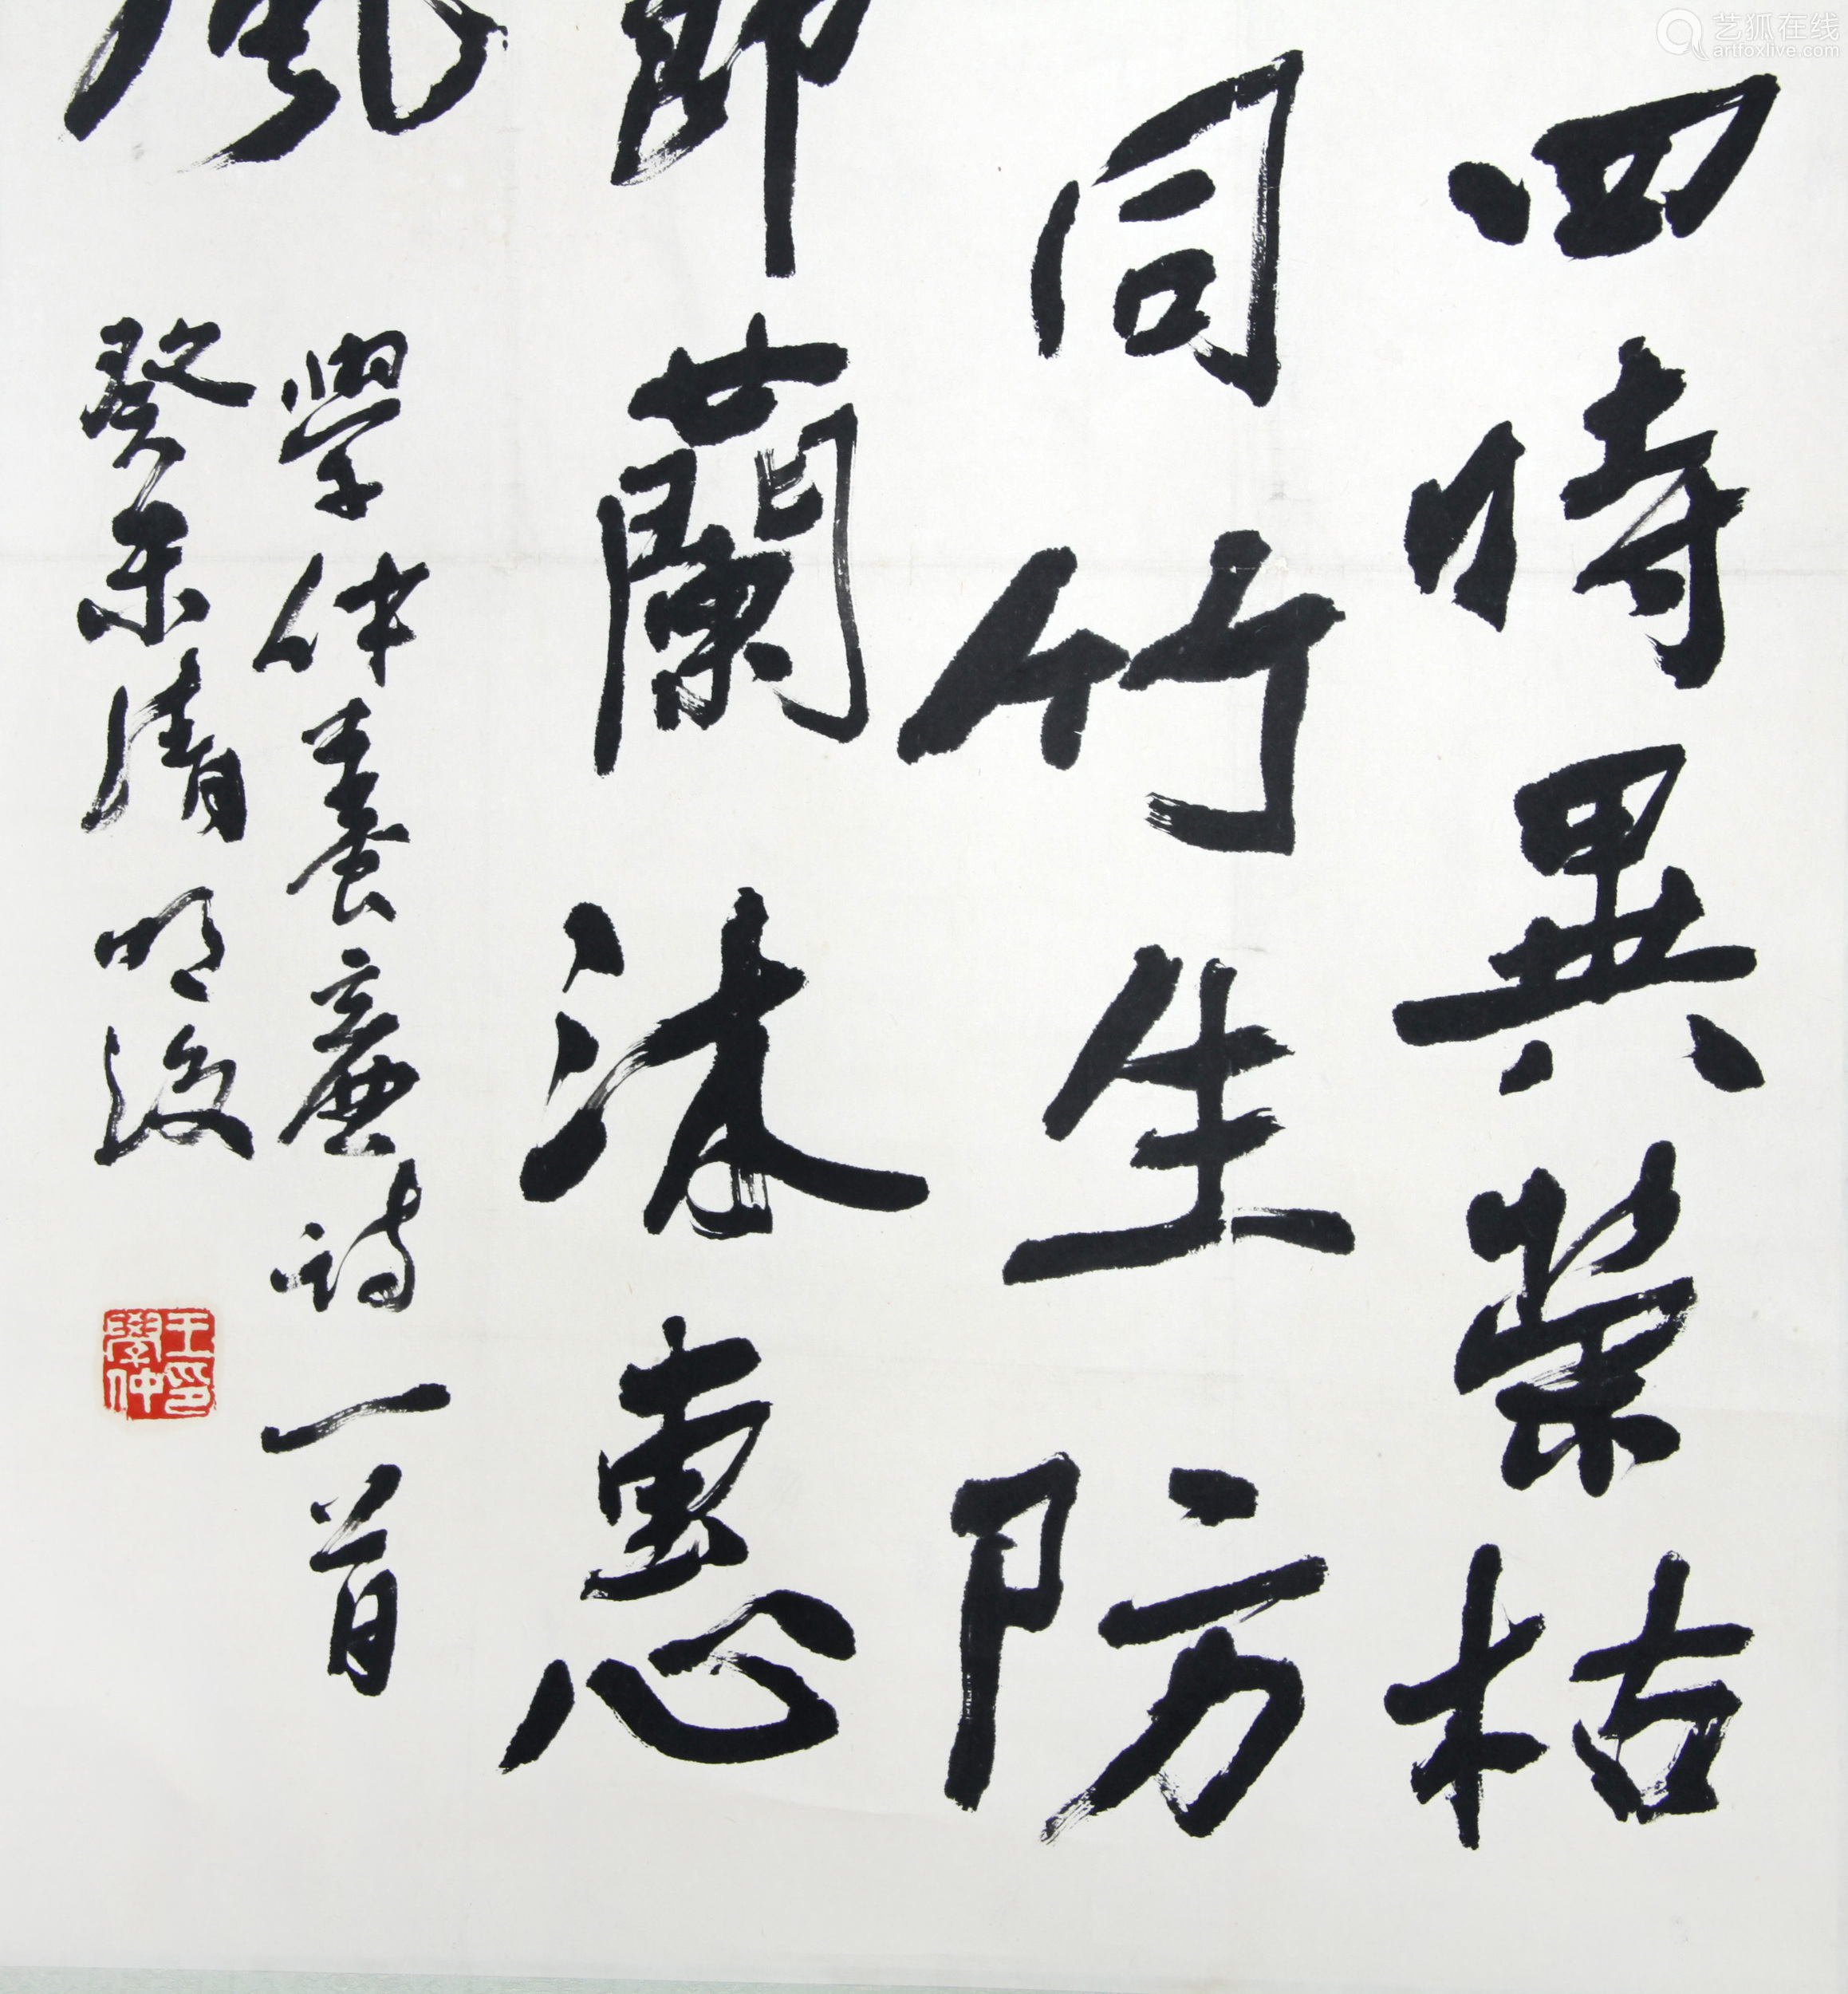 四時異榮枯
同竹生防
蘭沐惠
風
學仲養廉詩一首
癸未清明後
王印學仲
艺狐在线
artfoxlive.com